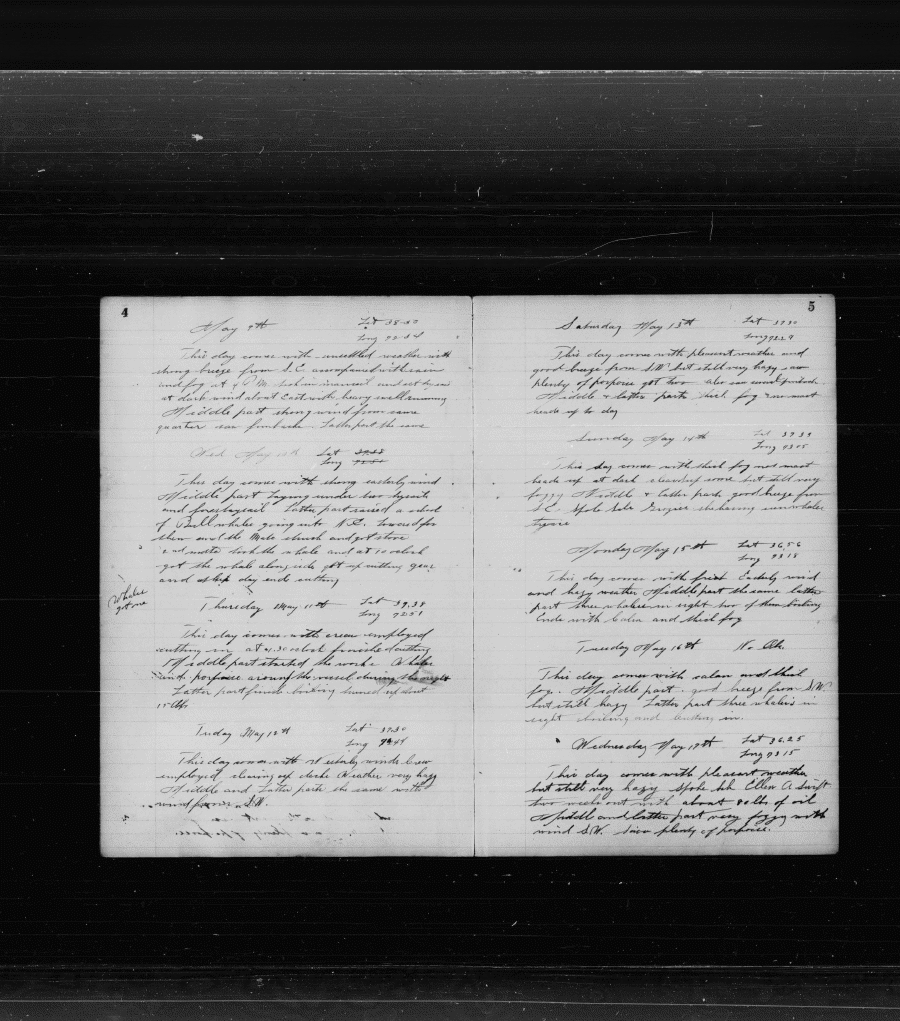 4
May 9th Lat 38-30
Long 72-34
This day comes with unsettled weather with
strong breeze from S.E. accompanied with rain
and fog at 4 P.M. took in mainsail and set try sail
at dark wind about East with heavy swell running
Middle part strong wind from same
quarter saw finbacks. Latter part the same
Wed May 10th Lat 39-38
Long 72-50
This day comes with strong easterly wind
Middle part laying under two trysails
and forestaysail Latter part raised a school
of Bull whales going into N.E. Lowered for
them and the Mate struck and got stove
2nd mate took the whale and at 10 oclock
got the whale alongside got up cutting gear
and day ends cutting
Whales
got one
Thursday May 11th Lat 39.38
Long 7251
This day comes with crew employed
cutting in at 4.30 oclock finished cutting
Middle part started the works Whales
and porpoise around the vessel during the night
Latter part finish boiling turned up about
15 bbls
Friday May 12th Lat 39.30
Long 7244
This day comes with Westerly winds Crew
employed clearing up decks Weather very hazy
Middle and Latter parts the same with
wind from S.W.
5
Saturday May 13th Lat 3930
Long 7229
This day comes with pleasant weather and
good breeze from S.W. but still very hazy saw
plenty of porpoise got two also saw
Middle & latter parts thick fog & no mast
heads up to day
Sunday May 14th Lat 3933
Long 7305
This day comes with thick fog not mast
heads up at dark cleared up some but still very
foggy Middle & latter parts good breeze from
S.E. Spoke Sch
Monday May 15th Lat 3656
Long 7318
This day comes with fresh Easterly wind
and hazy weather Middle part the same latter
part three whalers in sight two of them boiling
Ends with Calm and thick fog
Tuesday May 16th No Obs.
This day comes with calm and thick
fog. Middle part good breeze from S.W.
but still hazy Latter part three whalers in
sight boiling and cutting in.
Wednesday May 17th Lat 36.25
Long 7315
This day comes with pleasant weather
but still very hazy Spoke Sch Ellen A Swift
two weeks out with about 80 lbs of oil
Middle and latter part very foggy with
wind S.W. Saw plenty of porpoise.